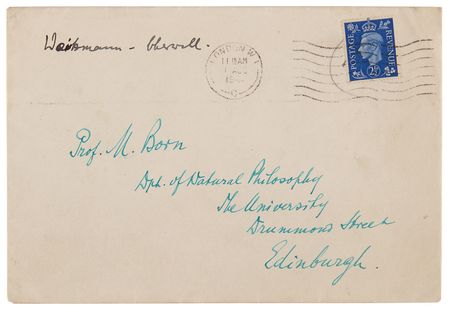 Waitzmann - Cherwell.
LONDON W.1
11 15 AM
C
POSTAGE REVENUE
2½D
Prof. M. Born
Dpt. of Natural Philosophy
The University
Drummond Street
Edinburgh.